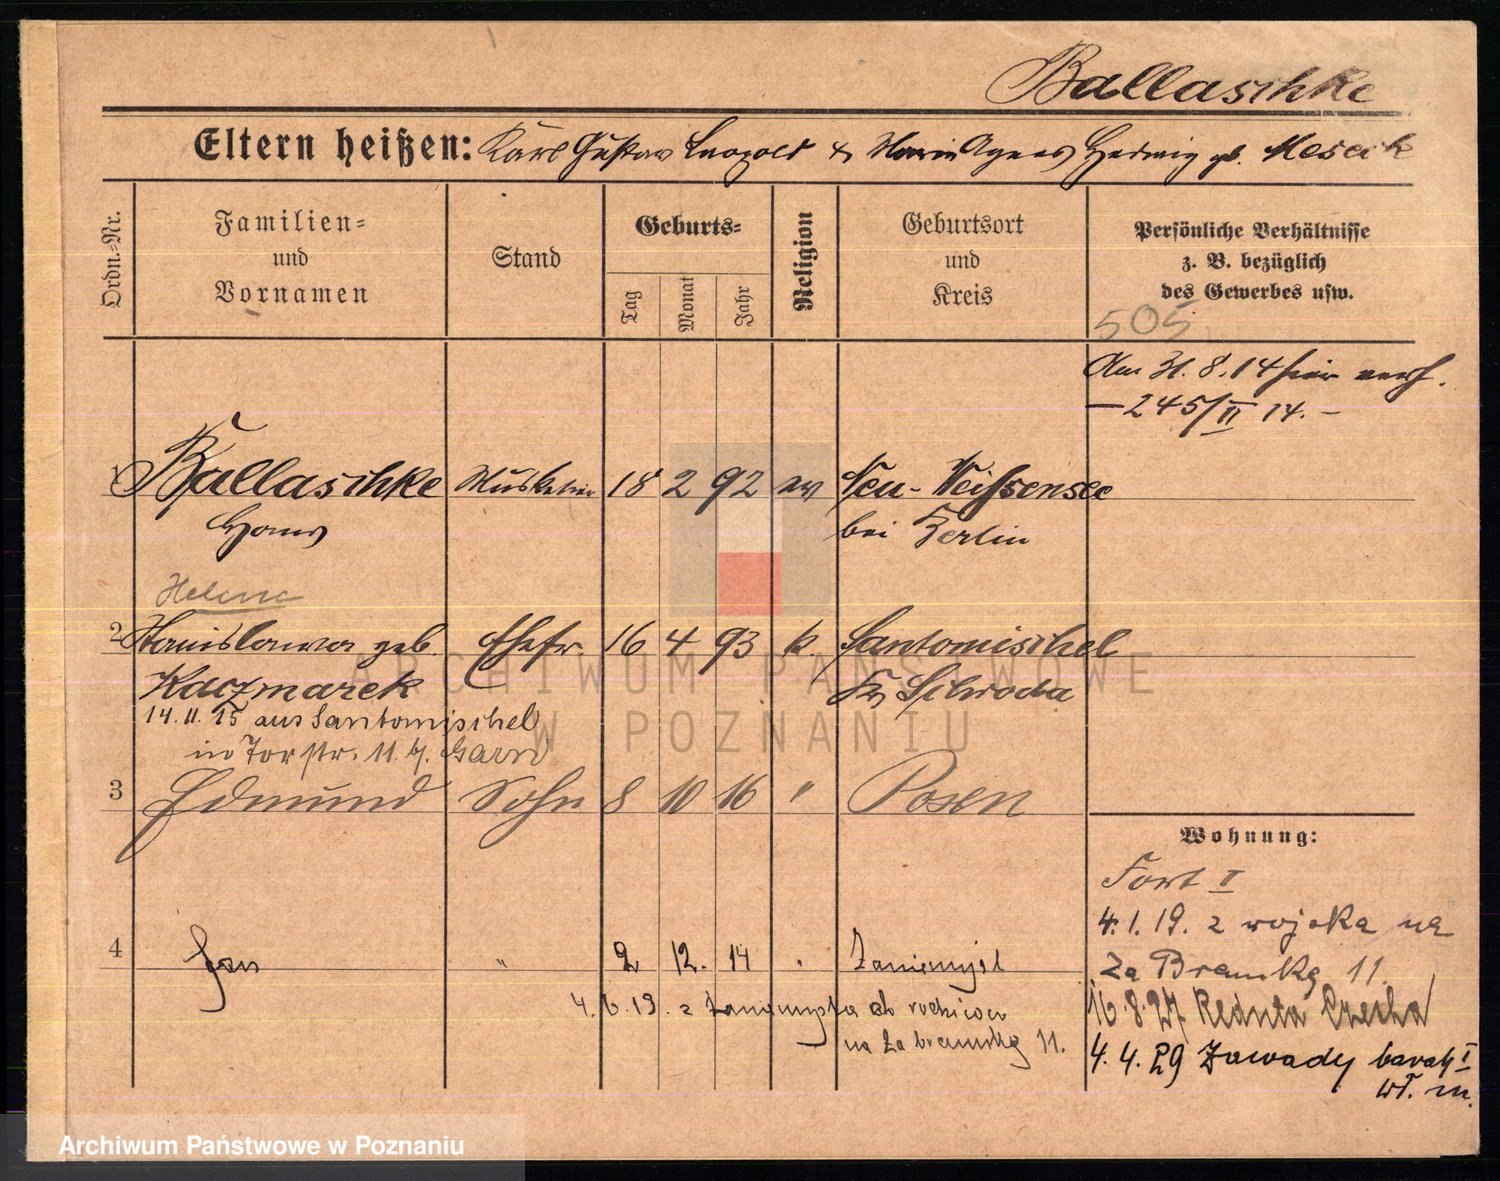 Ballaschke
Eltern heißen: Karl Gustav Leopold & Maria Agnes Hedwig gb. Meseck
Ordn.-Nr.
Familien-
und
Vornamen
Stand
Geburts-
Tag
Monat
Jahr
Religion
Geburtsort
und
Kreis
Persönliche Verhältnisse
z. B. bezüglich
des Gewerbes usw.
505
Am 31. 8. 14 hier verh.
— 245/II 14. —
1 Ballaschke Musketier 18 2 92 ev Neu-Weißensee
Hans bei Berlin
Helene
2 Stanislawa geb. Ehefr. 16 4 93 k. Santomischel
Kaczmarek Kr Schroda
14. 11. 15 aus Santomischel
in Torstr. 11 b/.
3 Edmund Sohn 8 10 16 " Posen
Wohnung:
Fort I
4. 1. 19. z wojska na
Za Bramką 11.
4 Jan " 2 12. 14 " Zaniemyśl
4. 6. 19. z Zaniemyśla do rodziców
na Za bramką 11.
16. 8. 27 Reduta Czecha
4. 4. 29 Zawady barak I
wł. m.
ARCHIWUM PAŃSTWOWE
W POZNANIU
Archiwum Państwowe w Poznaniu